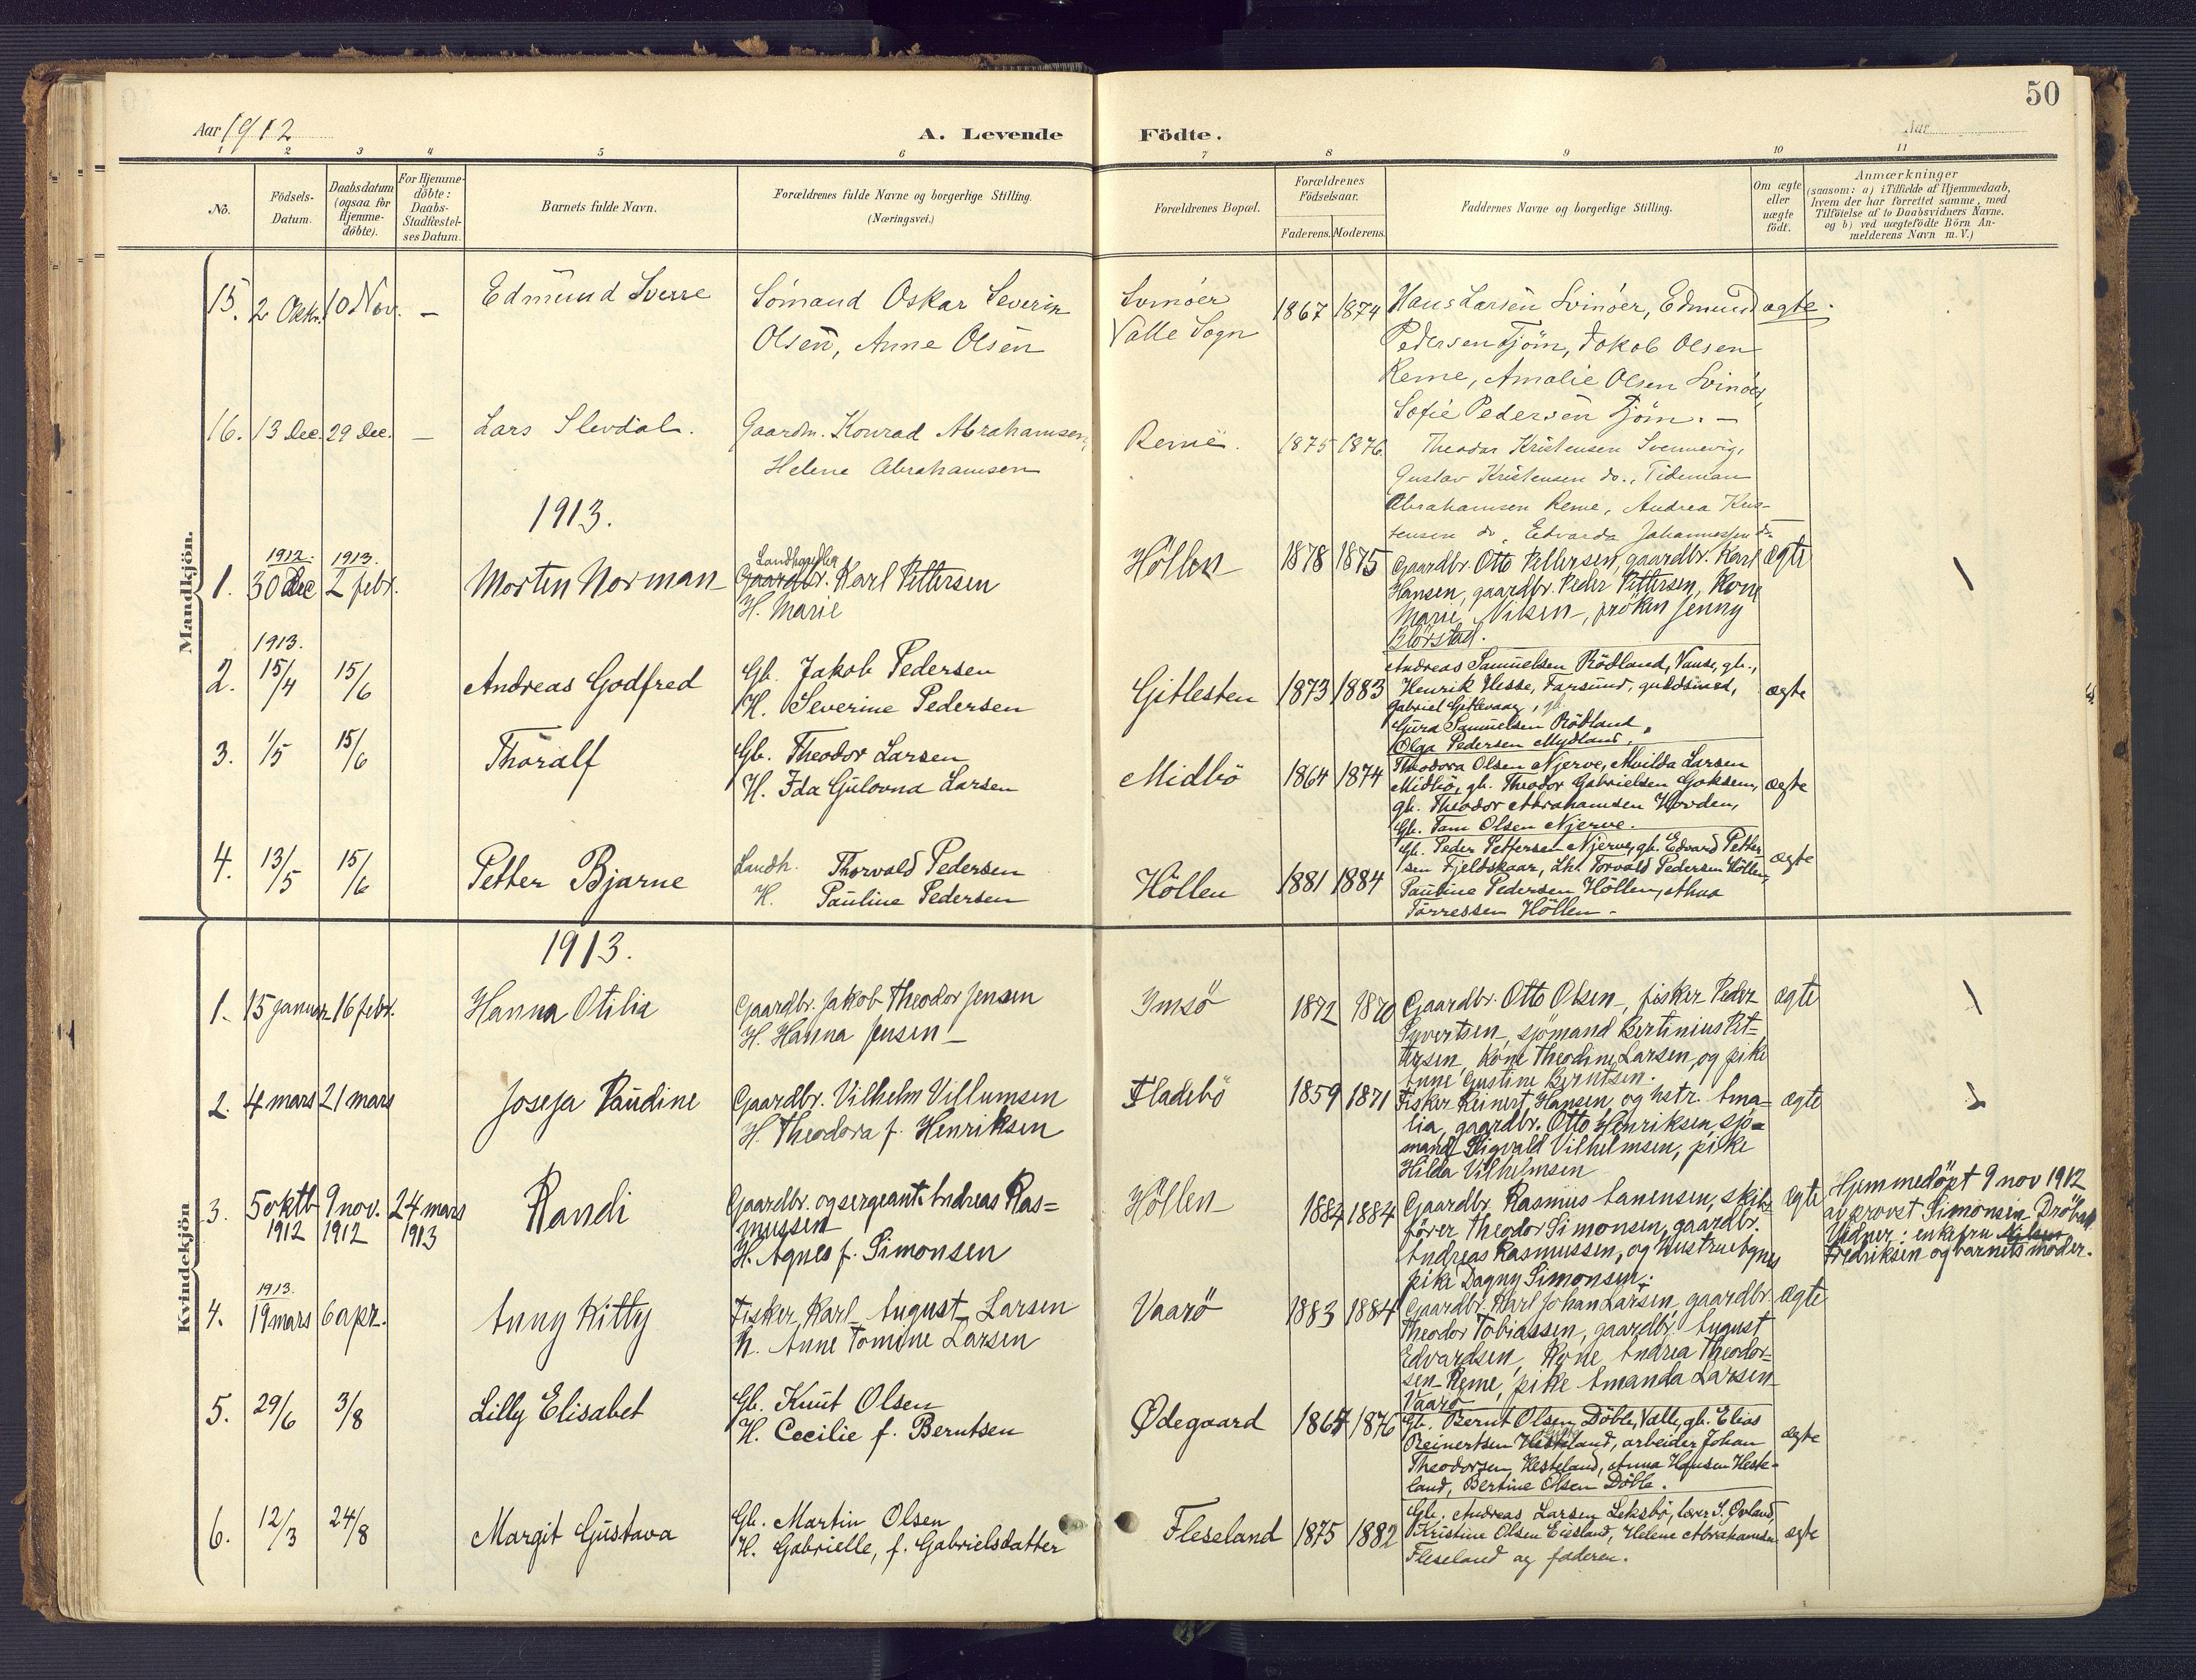 50
Aar 1912
A. Levende Födte.
Aar
1 2 3 4 5 6 7 8 9 10 11
No.
Födsels-
Datum.
Daabsdatum
(ogsaa for
Hjemme-
döbte).
For Hjemme-
döbte:
Daabs-
Stadfæstel-
ses Datum.
Barnets fulde Navn.
Forældrenes fulde Navne og borgerlige Stilling.
(Næringsvei.)
Forældrenes Bopæl.
Forældrenes
Födselsaar.
Faderens. Moderens.
Faddernes Navne og borgerlige Stilling.
Om ægte
eller
uægte
født.
Anmærkninger
(saasom: a) i Tilfælde af Hjemmedaab,
hvem der har forrettet samme, med
Tilföielse af to Daabsvidners Navne,
og b) ved uægtefödte Börn An-
melderens Navn m. V.)
Mandkjön.
15. 2 Oktr. 10 Nov. – Edmund Sverre
Sömand Oskar Severin
Olsen, Anne Olsen
Svinöer
Valle Sogn
1867 1874
Hans Larsen Svinöer, Edmund
Pedersen Tjöm, Jakob Olsen
Reme, Amalie Olsen Svinöer,
Sofie Pedersen Tjöm. –
ægte.
16. 13 Dec. 29 Dec. – Lars Slevdal.
Gaardm. Konrad Abrahamsen,
Helene Abrahamsen
Reme.
1875 1876
Theodor Kristensen Svennevig,
Gustav Kristensen do., Tideman
Abrahamsen Reme, Andrea Kris-
tensen do, Edvarda Johannessen do
1913.
1912. 1913.
1. 30 Dec 2 febr. Morten Norman
Landhandler
Gaardbr. Karl Pettersen
H. Marie
Höllen
1878 1875
Gaardbr. Otto Pettersen, gaardbr. Karl
Hansen, gaardbr. Peder Pettersen, Kone
Marie Nilsen, fröken Jenny
ægte
1913.
2. 15/4 15/6 Andreas Godfred
Gb. Jakob Pedersen
H. Severine Pedersen
Gitlesten
1873 1883
Andreas Samuelsen Rödland, Vanse, gb.,
Henrik Hesse, Farsund, guldsmed,
Gabriel Gitlevaag, gb.
Gura Samuelsen Rödland,
Olga Pedersen Mydland.
ægte
3. 1/5 15/6 Thoralf
Gb. Theodor Larsen
H. Ida Gulovna Larsen
Midbö
1864 1874
Theodora Olsen Njerve, Alvilda Larsen
Midbö, gb. Theodor Gabrielsen Goksem,
gb. Theodor Abrahamsen Howden,
Gb. Tam Olsen Njerve.
ægte
4. 13/5 15/6 Petter Bjarne
Landh. Thorvald Pedersen
H. Pauline Pedersen
Höllen
1881 1884
Gb. Peder Pettersen Njerve, gb. Edvard Petter
sen Fjeldskaar, Lh. Torvald Pedersen Höllen,
Pauline Pedersen Höllen,
Torressen Höllen.
ægte
Kvindekjön
1913.
1. 15 januar 16 febr. Hanna Otilia
Gaardbr. Jakob Theodor Jensen
H. Hanna Jensen
Imsö
1872 1870
Gaardbr. Otto Olsen, fisker Peder
Syvertsen, sjömand Bertinius Pet=
tersen, Kone Theodine Larsen, og pike
Anne Gustine Berntsen.
ægte
2. 4 mars 21 mars Josefa Paudine
Gaardbr. Vilhelm Villumsen
H. Theodora f. Henriksen
Fladebö
1859 1871
Fisker Reinert Hansen og hstr. Ama=
lia, gaardbr. Otto Henriksen, sjö=
mand Sigvald Vilhelmsen, pike
Hilda Vilhelmsen
ægte
3. 5 oktb 9 nov. 24 mars
1912 1912 1913
Randi
Gaardbr. og sergeant Andreas Ras=
mussen
H. Agnes f. Simonsen
Höllen
1884 1884
Gaardbr. Rasmus Aanensen, skibs
förer Theodor Simonsen, gaardbr.
Andreas Rasmussen, og hustrue Agnes
pike Dagny Simonsen.
ægte
Hjemmedöpt 9 nov 1912
av provst Simonsen Dröbak
Vidner: enkefru
Fredriksen og barnets moder.
1913.
4. 19 mars 6 apr. Anny Kitty
Fisker Karl August Larsen
h. Anne Tomine Larsen
Vaarö
1883 1884
Gaardbr. Karl Johan Larsen, gaardbr.
Theodor Tobiassen, gaardbr. August
Edvardsen, Kone Andrea Theodor=
sen Reme, pike Amanda Larsen
Vaarö
ægte
5. 29/6 3/8 Lilly Elisabet
Gb. Knut Olsen
H. Cecilie f. Berntsen
Ødegaard
1867 1876
Gb. Bernt Olsen Döble, Valle, gb. Elias
Reinertsen Hesteland, arbeider Johan
Theodorsen Hesteland, Anna Hansen Heste-
land, Bertine Olsen Döble.
ægte
6. 12/3 24/8 Margit Gustava
Gb. Martin Olsen
H. Gabrielle, f. Gabrielsdatter
Fleseland
1875 1882
Gb. Andreas Larsen Leksbö, lærer S. Øvland,
Kristine Olsen Eigsland, Helene Abrahamsen
Fleseland og faderen.
ægte